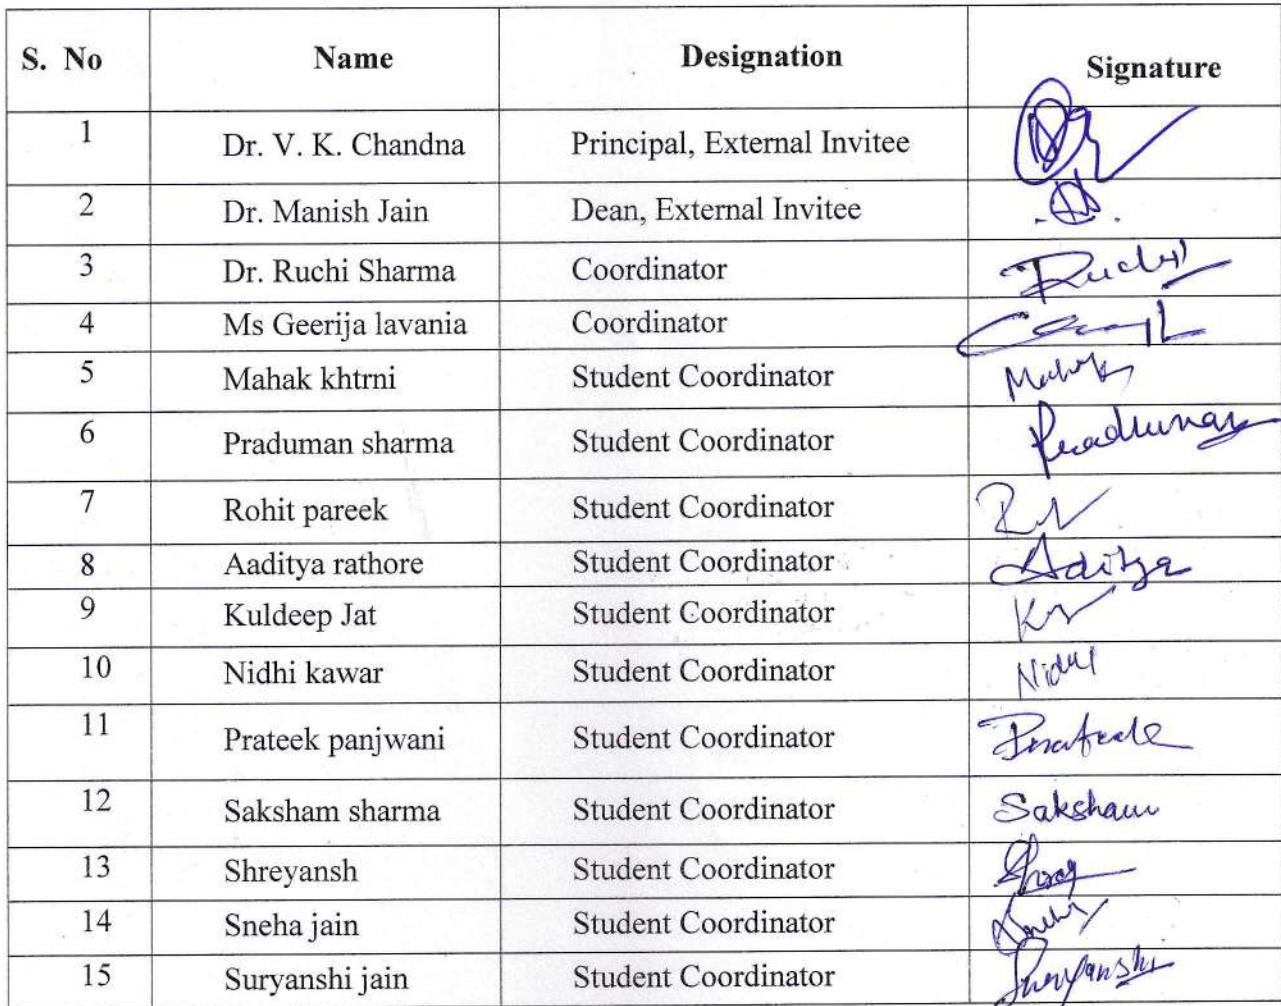 S. No Name Designation Signature
1 Dr. V. K. Chandna Principal, External Invitee
2 Dr. Manish Jain Dean, External Invitee
3 Dr. Ruchi Sharma Coordinator Ruchi
4 Ms Geerija lavania Coordinator
5 Mahak khtrni Student Coordinator Mahak
6 Praduman sharma Student Coordinator Praduman
7 Rohit pareek Student Coordinator
8 Aaditya rathore Student Coordinator Aditya
9 Kuldeep Jat Student Coordinator
10 Nidhi kawar Student Coordinator Nidhi
11 Prateek panjwani Student Coordinator Prateek
12 Saksham sharma Student Coordinator Saksham
13 Shreyansh Student Coordinator
14 Sneha jain Student Coordinator Sneha
15 Suryanshi jain Student Coordinator Suryanshi